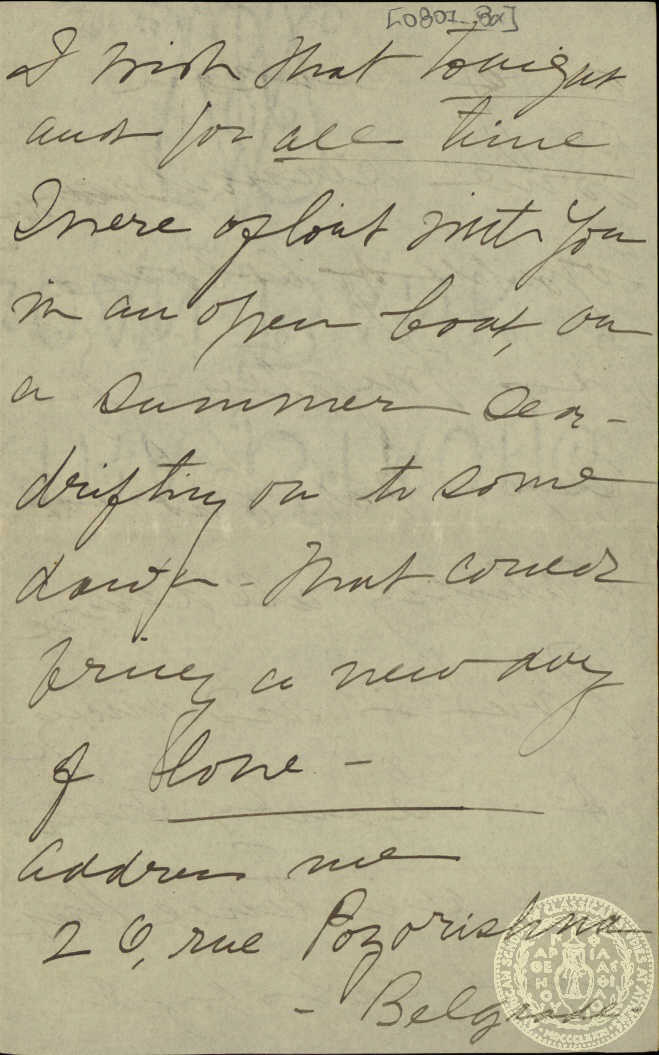 I wish that tonight
and for all time
I were afloat with you
in an open boat, on
a summer sea -
drifting on to some
dawn - that could
bring a new day
of love -
Address me
20, rue Pozorishna
- Belgrade -